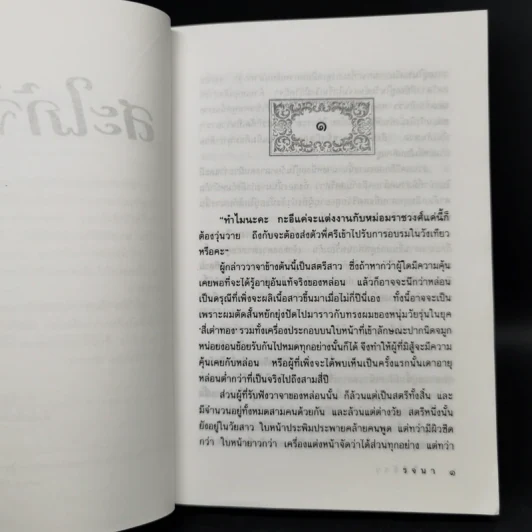 สะใภ้จ
๑
"ทำไมนะคะ กะอีแค่จะแต่งงานกับหม่อมราชวงศ์แค่นี้ก็
ต้องวุ่นวาย ถึงกับจะต้องส่งตัวพี่ศรีเข้าไปรับการอบรมในวังเทียว
หรือคะ"
ผู้กล่าววาจาข้างต้นนี้เป็นสตรีสาว ซึ่งถ้าหากว่าผู้ใดมีความคุ้น
เคยพอที่จะได้รู้อายุอันแท้จริงของหล่อน แล้วก็อาจจะนึกว่าหล่อน
เป็นดรุณีที่เพิ่งจะผลิเนื้อสาวขึ้นมาเมื่อไม่กี่ปีนี่เอง ทั้งนี้อาจจะเป็น
เพราะผมตัดสั้นหยักยุ่งปัดไปมาราวกับทรงผมของหนุ่มวัยรุ่นในยุค
'สี่เต่าทอง' รวมทั้งเครื่องประกอบบนใบหน้าที่เข้าลักษณะปากนิดจมูก
หน่อยงอนย้อยรับกันไปหมดทุกอย่างนั้นก็ได้ จึงทำให้ผู้ที่มิสู้จะมีความ
คุ้นเคยกับหล่อน หรือผู้ที่เพิ่งจะได้พบเห็นเป็นครั้งแรกนั้นเดาอายุ
หล่อนต่ำกว่าที่เป็นจริงไปถึงสามสี่ปี
ส่วนผู้ที่รับฟังวาจาของหล่อนนั้น ก็ล้วนแต่เป็นสตรีทั้งสิ้น และ
มีจำนวนอยู่ทั้งหมดสามคนด้วยกัน และล้วนแต่ต่างวัย สตรีหนึ่งนั้น
ยังอยู่ในวัยสาว ใบหน้าประพิมประพายคล้ายคนพูด แต่ทว่ามีผิวซีด
กว่า ใบหน้ายาวกว่า เครื่องแต่งหน้าจัดว่าได้ส่วนทุกอย่าง แต่ทว่า
รจนา ๑